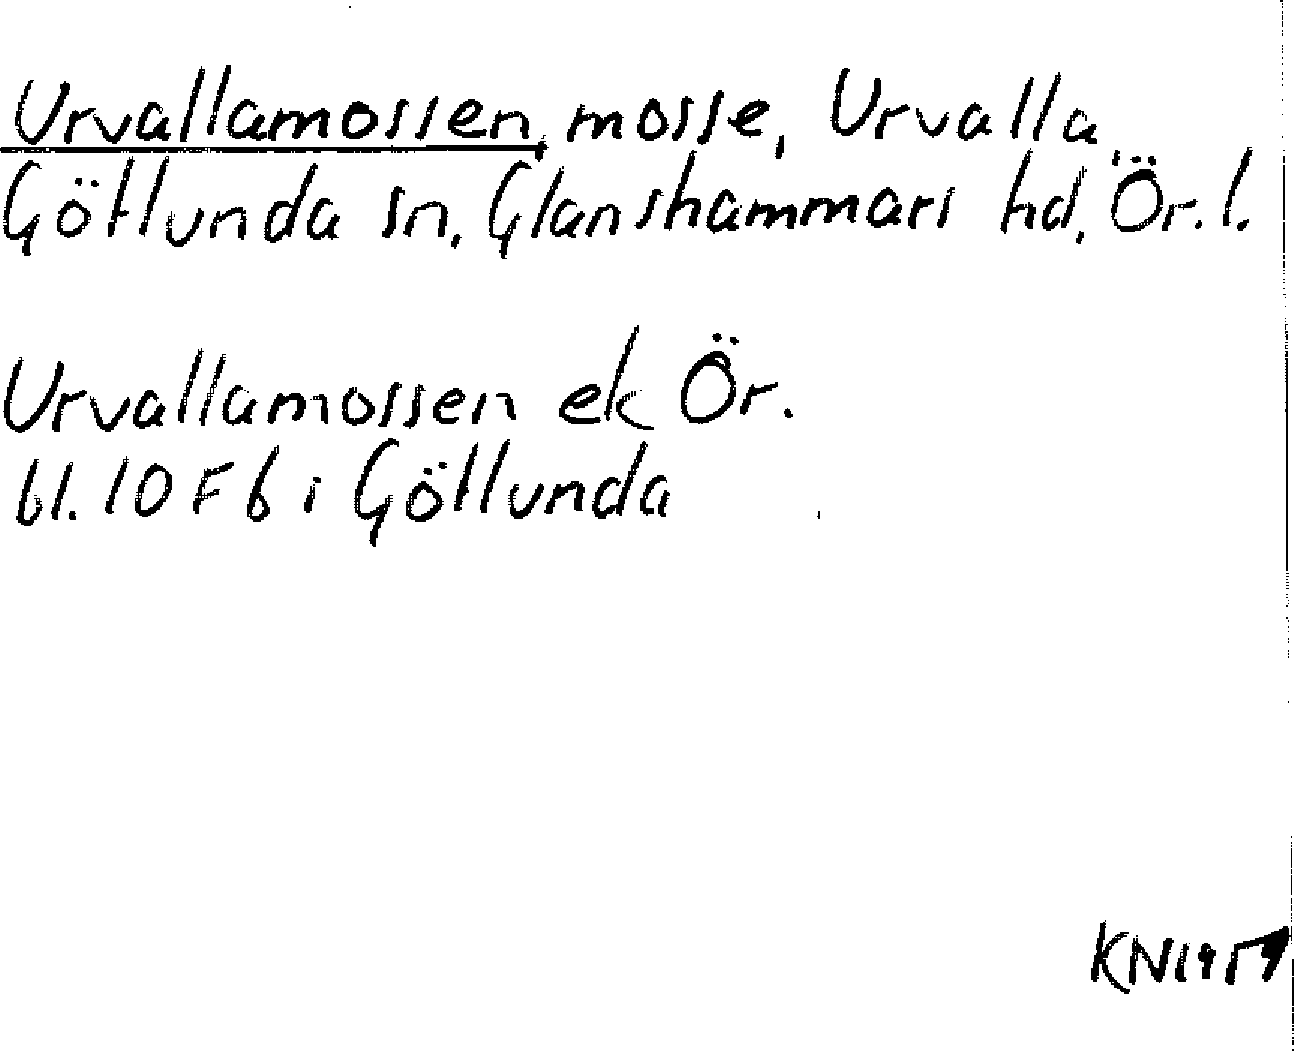 Urvallamossen, mosse, Urvalla,
Götlunda sn, Glanshammars hd, Ör. l.
Urvallamossen ek Ör.
bl. 10 F b i Götlunda